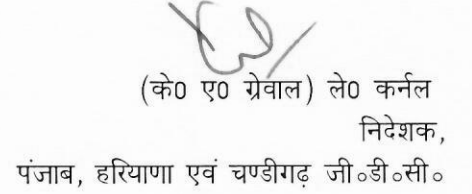 (के0 ए0 ग्रेवाल) ले0 कर्नल
निदेशक,
पंजाब, हरियाणा एवं चण्डीगढ़ जी०डी०सी०